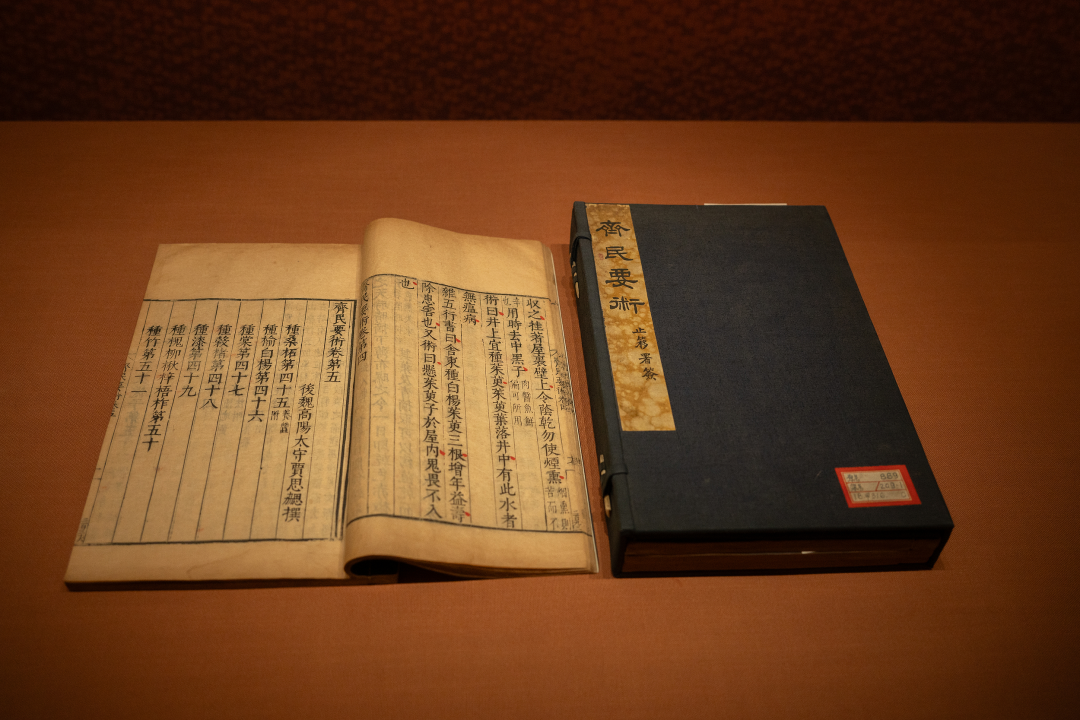 収之桂著屋裏壁上令蔭乾勿使煙熏
用時去中黑子
術曰井上宜種茱萸茱萸葉落井中有此水者
無瘟病
雜五行書曰舍東種白楊茱萸三根增年益壽
除患害也又術曰懸茱萸子於屋内鬼畏不入
也
齊民要術卷第五
後魏髙陽太守賈思勰撰
種桑柘第四十五養蠶附
種榆白楊第四十六
種棠第四十七
種榖楮第四十八
種漆第四十九
種槐柳楸梓梧柞第五十
種竹第五十一
齊民要術
署簽